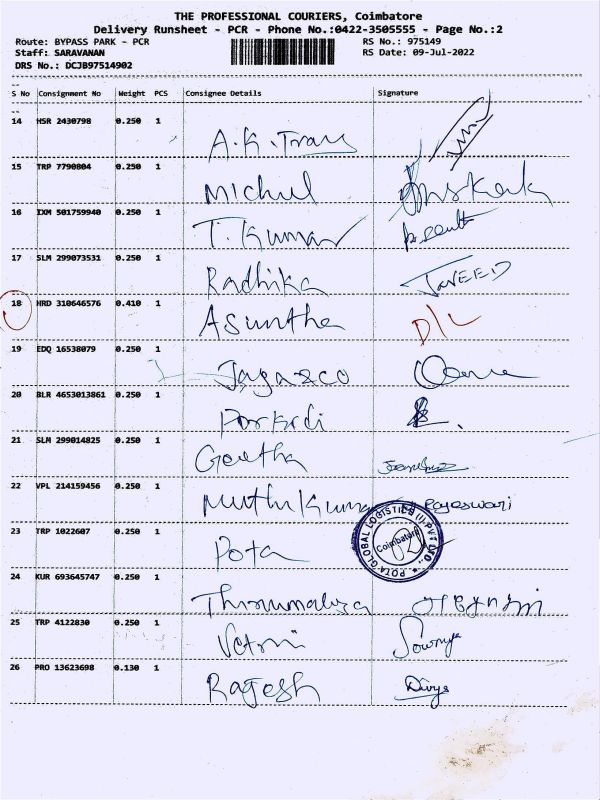 THE PROFESSIONAL COURIERS, Coimbatore
Delivery Runsheet - PCR - Phone No.:0422-3505555 - Page No.:2
Route: BYPASS PARK - PCR RS No.: 975149
Staff: SARAVANAN RS Date: 09-Jul-2022
DRS No.: DCJB97514902
S No Consignment No Weight PCS Consignee Details Signature
14 HSR 2430798 0.250 1
A.K.
15 TRP 7790804 0.250 1
Michul
16 IXM 501759940 0.250 1
T. Kumar
17 SLM 299073531 0.250 1
Radhika JAVEED
18 HRD 310646576 0.410 1
Asuntha D/L
19 EDQ 16538079 0.250 1
20 BLR 4653013861 0.250 1
21 SLM 299014825 0.250 1
Geetha
22 VPL 214159456 0.250 1
Muthu Kuma Rajeswari
23 TRP 1022607 0.250 1
Pota POTA GLOBAL LOGISTICS (I) PVT LTD., Coimbatore
24 KUR 693645747 0.250 1
25 TRP 4122830 0.250 1
Vetri Sowmya
26 PRO 13623698 0.130 1
Ragesh Divya